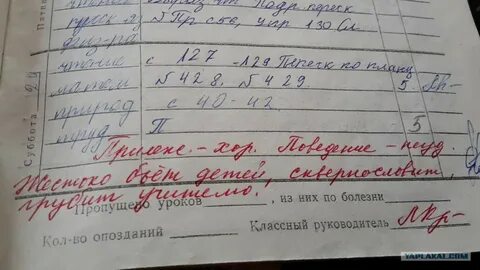 Пятниц
чтение
русск. яз
Подр. переск
№ Пр с 56, упр 130 Сл
физ-ра
чтение с 127 - 129 Переск по плану
матем № 428, № 429. 5
природ с 40-42
труд П 5
Суббота
Прилеж. - хор. Поведение - неуд.
Жестоко бьёт детей, сквернословит,
грубит учителю.
Пропущено уроков из них по болезни
Кол-во опозданий Классный руководитель
YAPLAKAL.COM